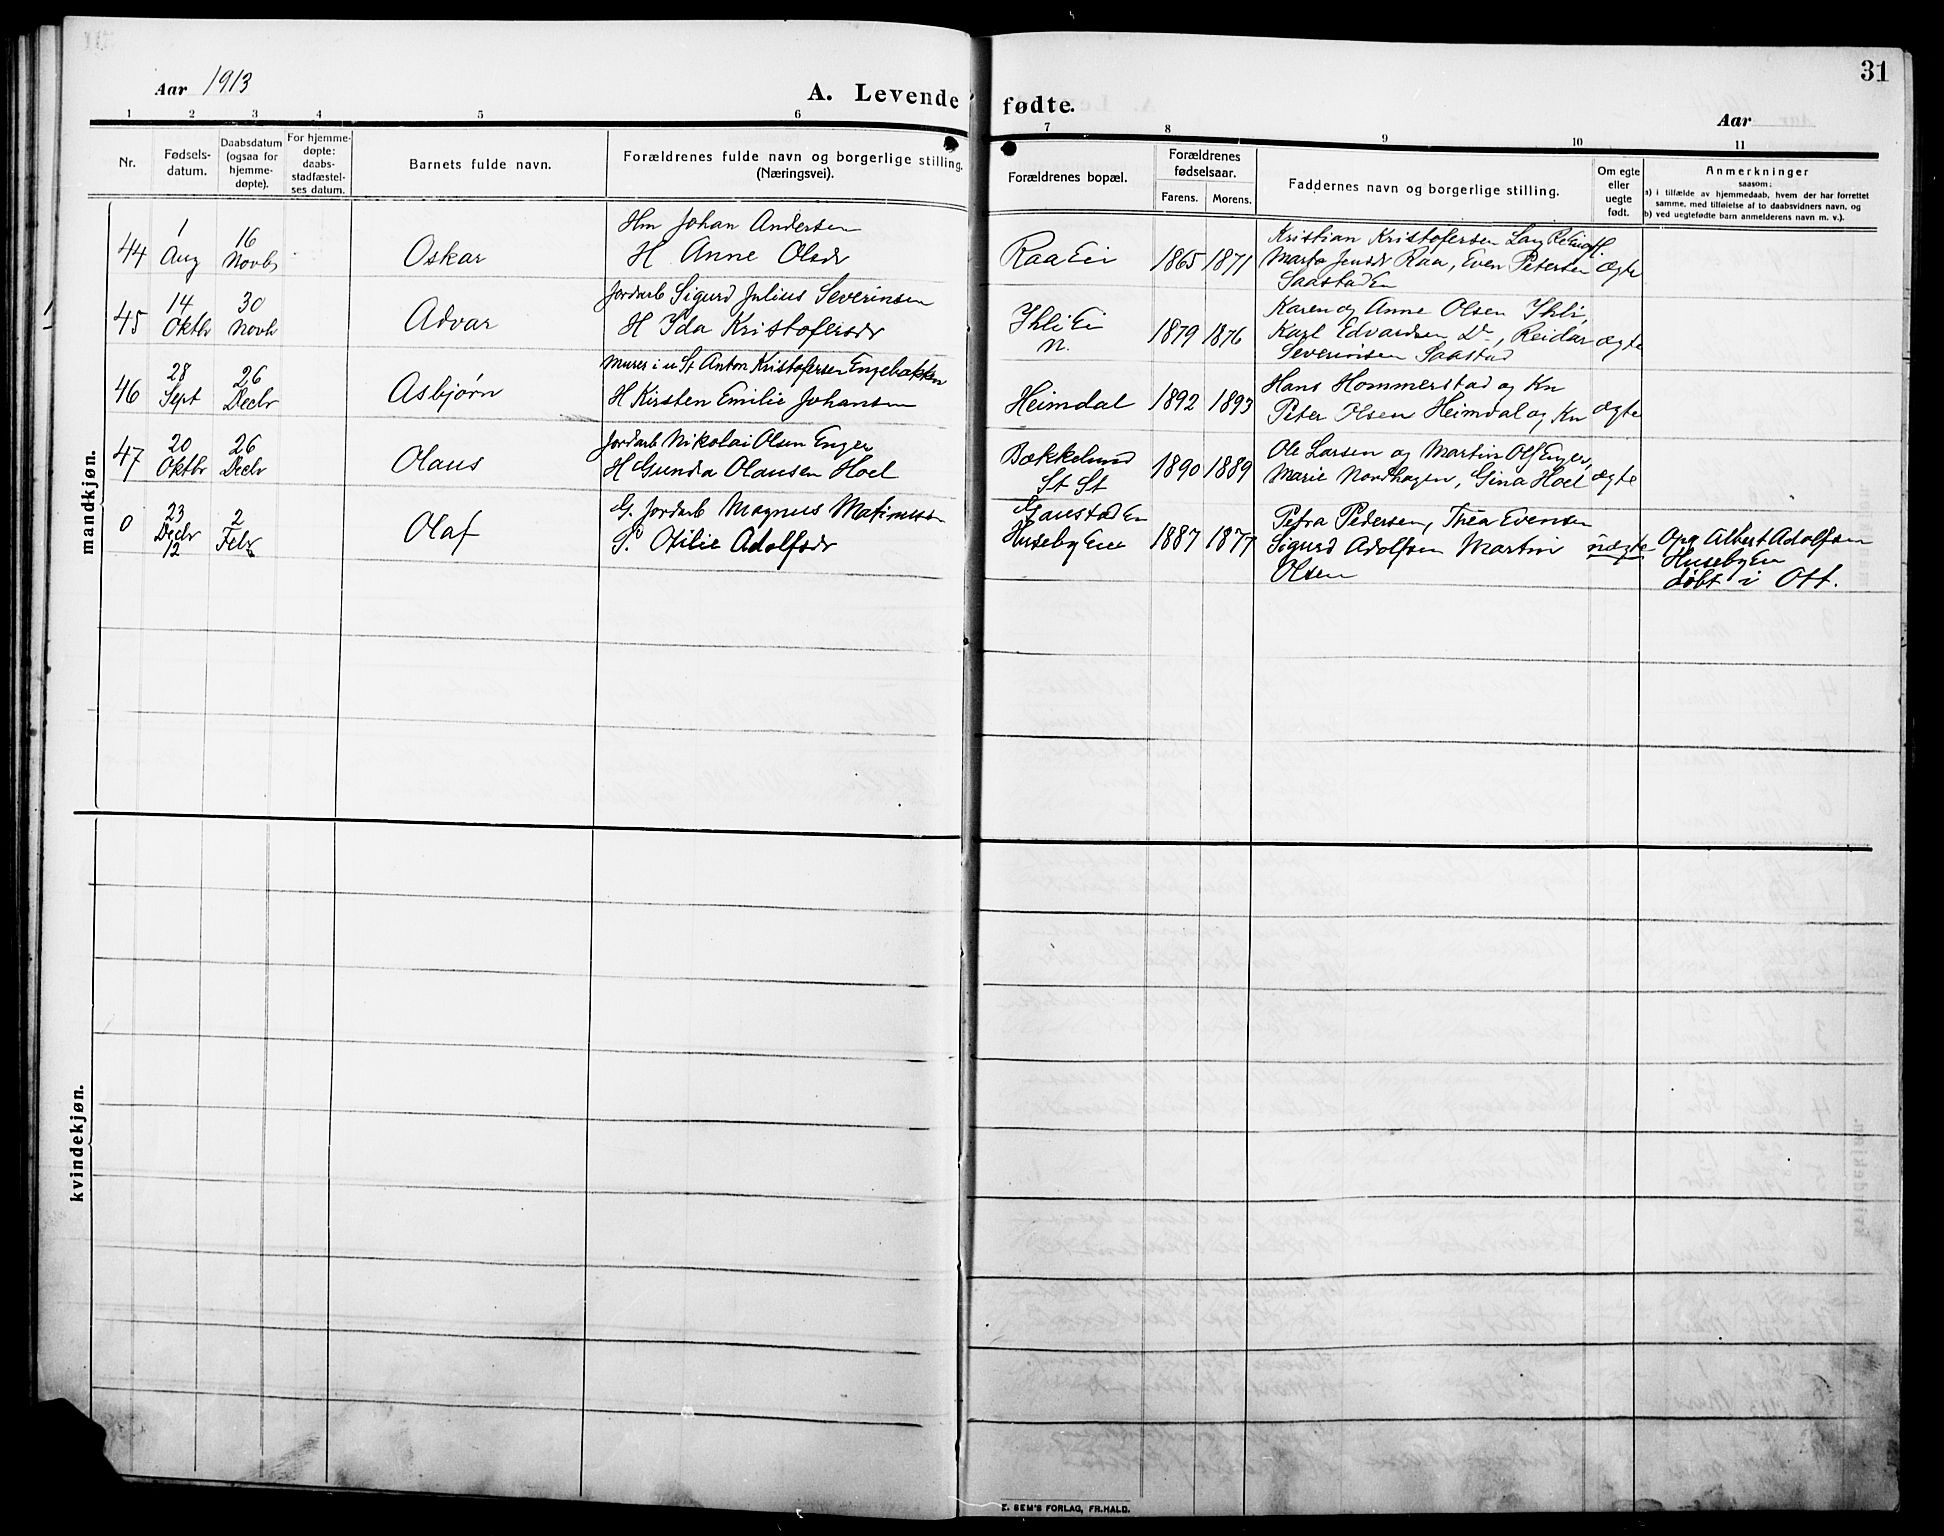 31
Aar 1913
A. Levende fødte.
Aar
1 2 3 4 5 6 7 8 9 10 11
Nr.
Fødsels-
datum.
Daabsdatum
(ogsaa for
hjemme-
døpte).
For hjemme-
døpte:
daabs-
stadfæstel-
ses datum.
Barnets fulde navn.
Forældrenes fulde navn og borgerlige stilling.
(Næringsvei).
Forældrenes bopæl.
Forældrenes
fødselsaar.
Farens. Morens.
Faddernes navn og borgerlige stilling.
Om egte
eller
uegte
født.
Anmerkninger
saasom:
a) i tilfælde av hjemmedaab, hvem der har forrettet
samme, med tilføielse af to daabsvidners navn, og
b) ved uegtefødte barn anmelderens navn m. v.).
mandkjøn.
44
1
Aug
16
Novb
Oskar
Hm Johan Andersen
H Anne Olsdr
Raa Ei
1865 1871
Kristian Kristofersen
Marta Jensdr Raa, Even Petersen
Saastad En
ægte
45
14
Oktbr
30
Novb
Advar
Jordarb Sigurd Julius Severinsen
H Ida Kristofersdr
Ihli Ei
N.
1879 1876
Karen og Anne Olsen Ihli,
Karl Edvardsen Do, Reidar
Severinsen Saastad
ægte
46
28
Sept
26
Decbr
Asbjørn
Murer i u St Anton Kristofersen Engebakken
H Kirsten Emilie Johansen
Heimdal
1892 1893
Hans Hommerstad og Kn
Peter Olsen Heimdal og Kn
ægte
47
20
Oktbr
26
Decbr
Olaus
Jordarb Nikolai Olsen Enger
H Gunda Olausen Hoel
Bækkelund
St St
1890 1889
Ole Larsen og Martin Ols Enger,
Marie Nordhagen, Gina Hoel
ægte
0
23
Decbr
12
2
Febr
Olaf
G. Jordarb Magnus Matinussen
P. Otilie Adolfsdr
Gaustad En
Huseby Eie
1887 1877
Petra Pedersen, Thea Evensen
Sigurd Adolfsen Martin
Olsen
uægte
Opg Albert Adolfsen
Huseby En
døbt i Ott.
kvindekjøn.
E. SEM'S FORLAG, FR.HALD.